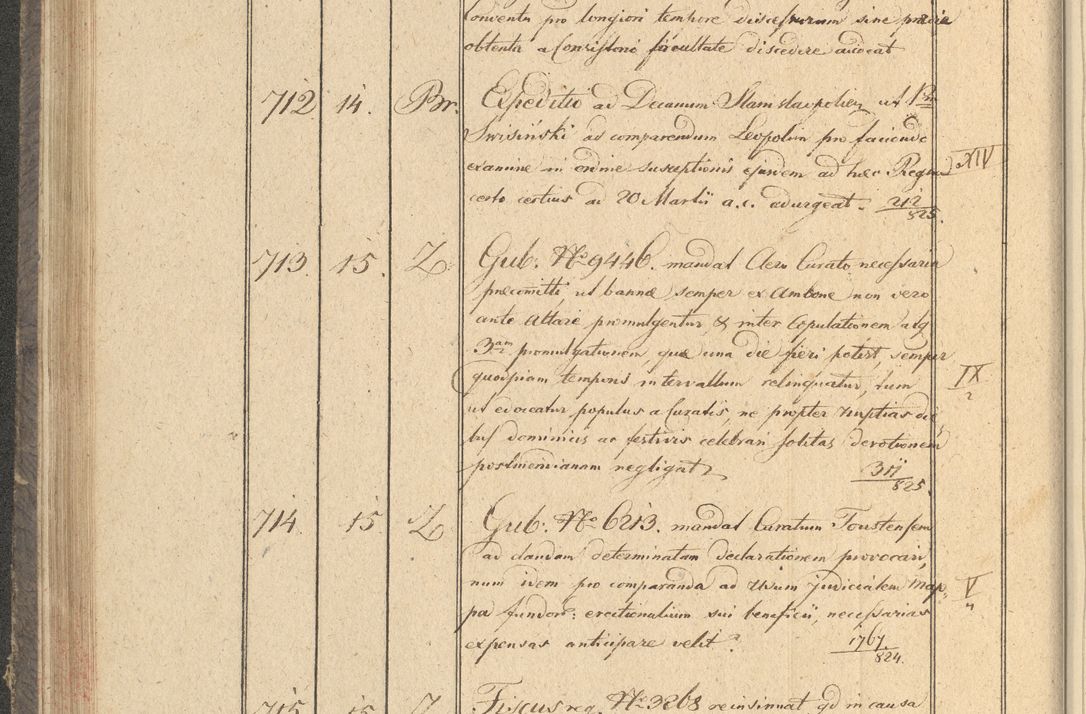 Conventu pro longiori tempore discessurum sine praevia
obtenta a Consistorio facultate discedere audeat
712. 14. Br. Expeditio ad Decanum Stanislaopolien ut
Swisiński ad comparendum Leopolim pro faciendo
examine in ordine susceptionis ejusdem ad haec Regna
XIV
certo certius ad 20 Martii a.c. adurgeat. 212/825.
713. 15. Z. Gub: No 9446. mandat Clero Curato necessaria
praecomitti, ut bannae semper ex Ambone non vero
ante Altare promulgentur, & inter Copulationem atq
3am promulgationem, quae una die fieri potest, semper
quodpiam temporis intervallum relinquatur, tum
IX/2
ut edoceatur populus a Curatis, ne propter Nuptias die,
bus dominicis ac festivis celebrari solitas devotionem
postmeridianam negligat
311/825.
714. 15 Z. Gub: No 6213. mandat Curatum Toustensem
ad dandam determinatam declarationem provocari,
num idem pro comparanda ad Usum judicialem Map,
V/4
pa fundor: erectionalium sui beneficii, necessarias
expensas anticipare velit?
1767/824.
715. 15 Z. Fiscus reg. No 3268 reinsinuat qd in causa